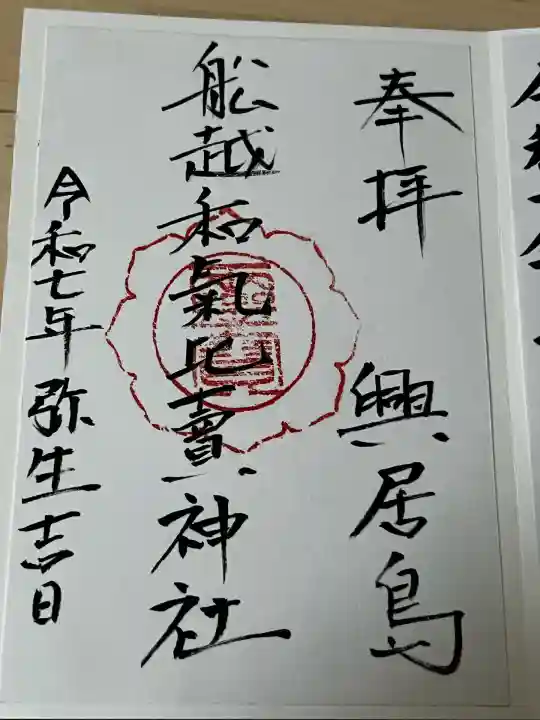 奉拝
興居島
船越和氣比賣神社
令和七年弥生吉日